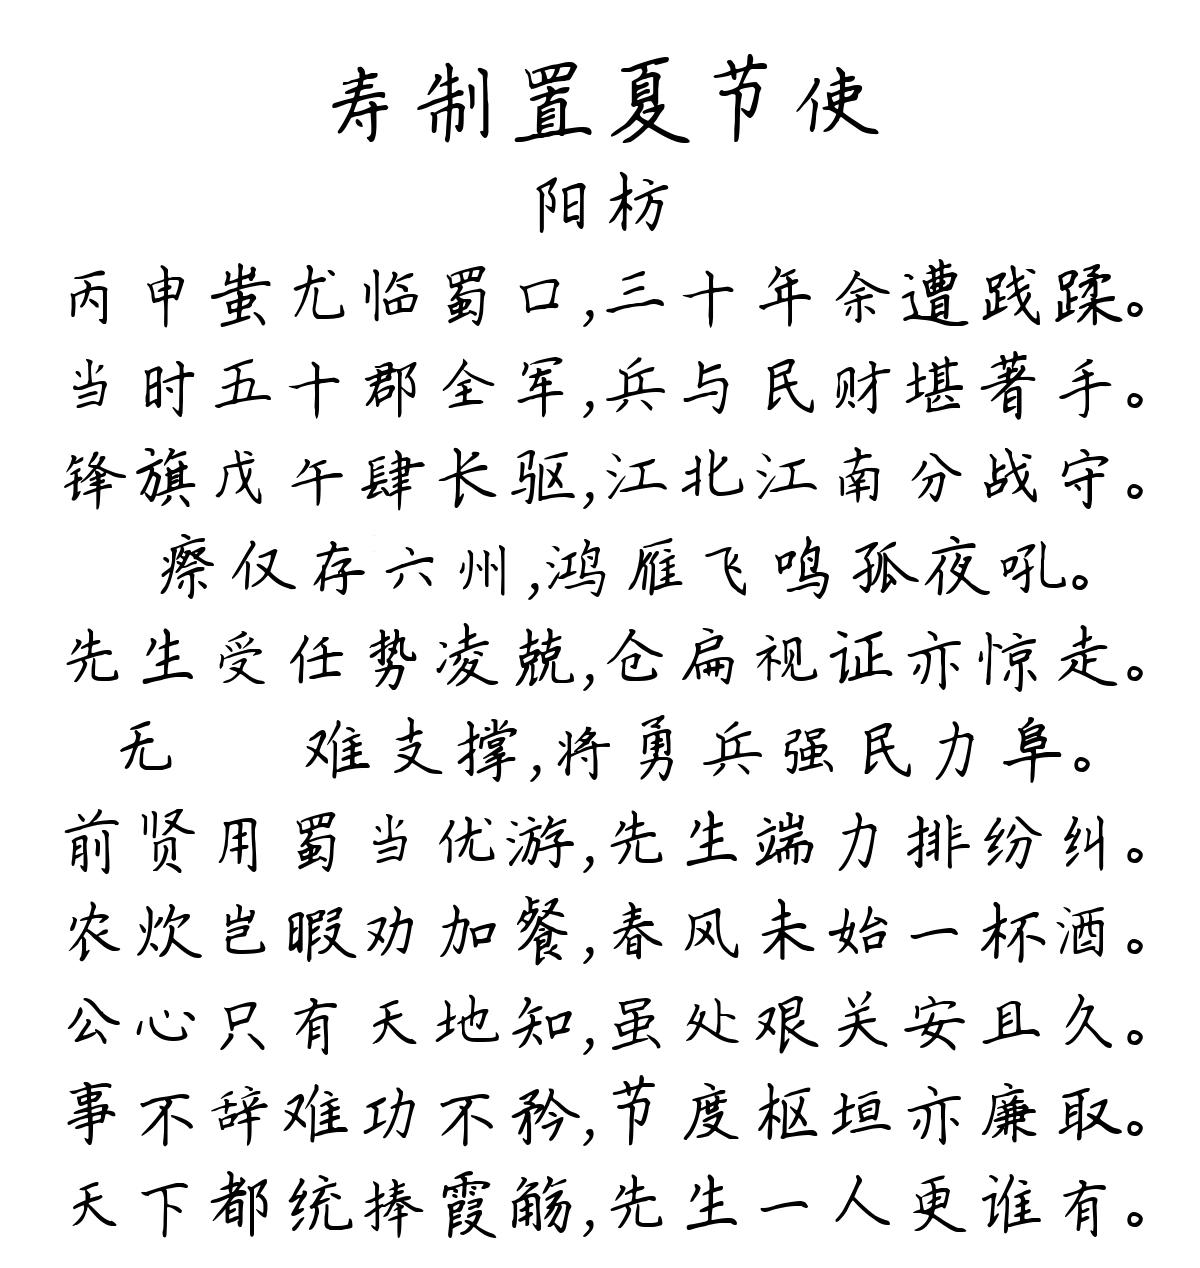 寿制置夏节使
阳枋
丙申蚩尤临蜀口,三十年余遭践蹂。
当时五十郡全军,兵与民财堪著手。
锋旗戊午肆长驱,江北江南分战守。
瘵仅存六州,鸿雁飞鸣孤夜吼。
先生受任势凌兢,仓扁视证亦惊走。
无 难支撑,将勇兵强民力阜。
前贤用蜀当优游,先生端力排纷纠。
农炊岂暇劝加餐,春风未始一杯酒。
公心只有天地知,虽处艰关安且久。
事不辞难功不矜,节度枢垣亦廉取。
天下都统捧霞觞,先生一人更谁有。